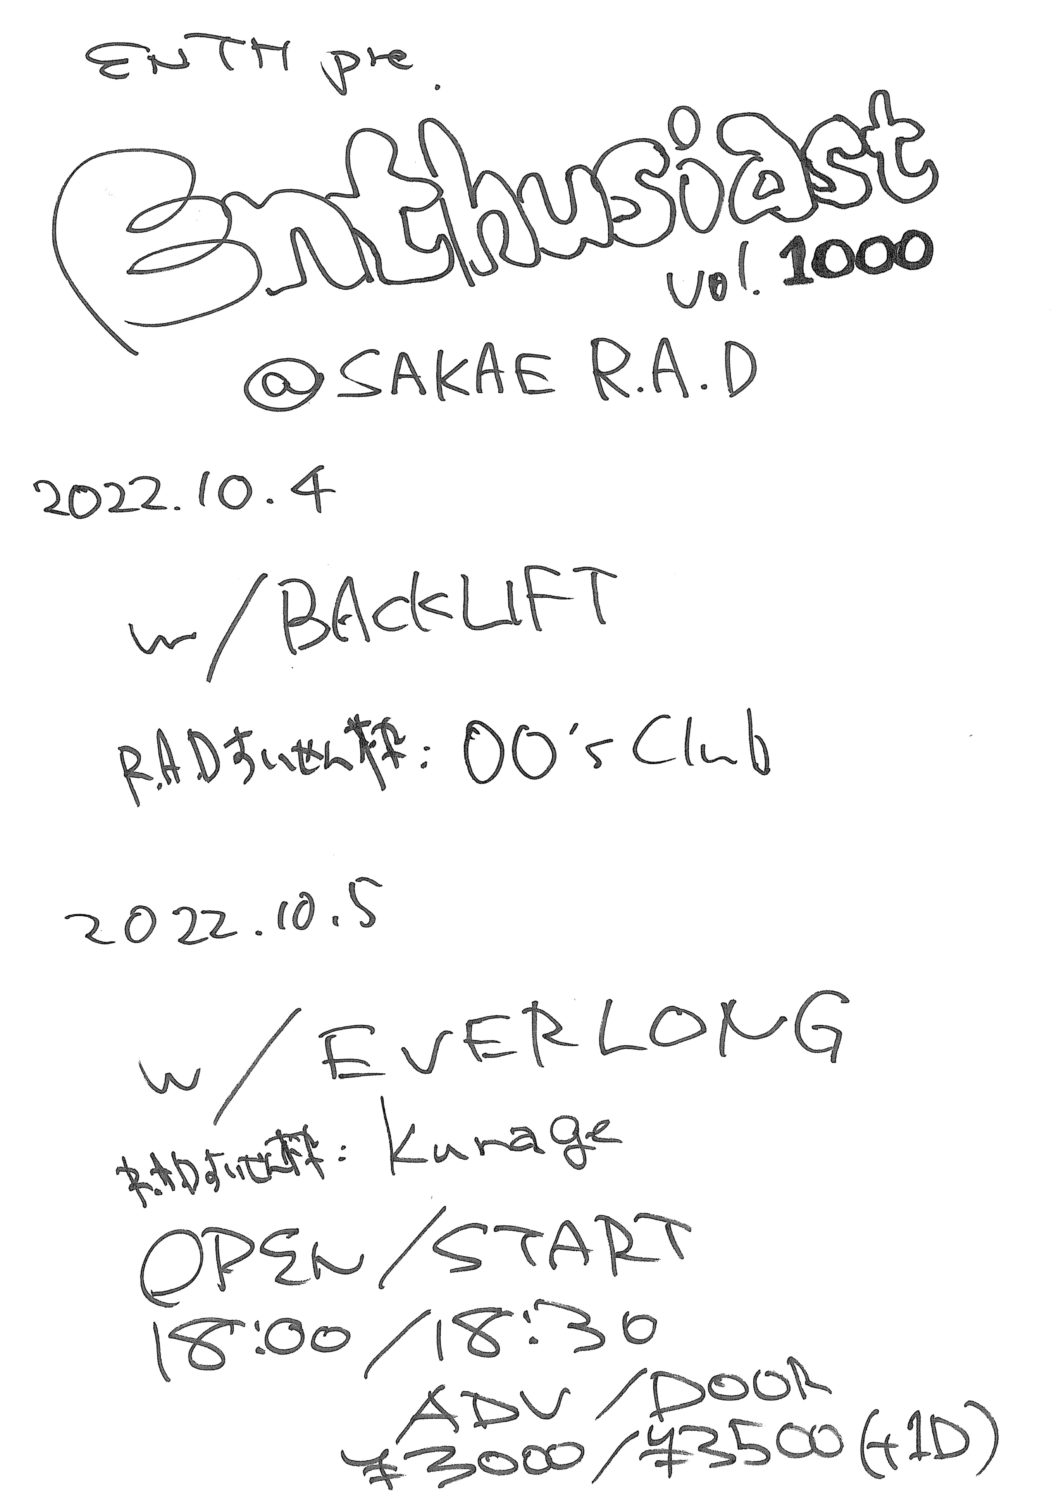 ENTH pre.
Enthusiast
vol.1000
@SAKAE R.A.D
2022.10.4
w/BAckLIFT
R.A.Dすいせん枠:00'sClub
2022.10.5
w/EVERLONG
R.A.Dすいせん枠:Kunage
OPEN/START
18:00/18:30
ADV/DOOR
¥3000/¥3500(+1D)